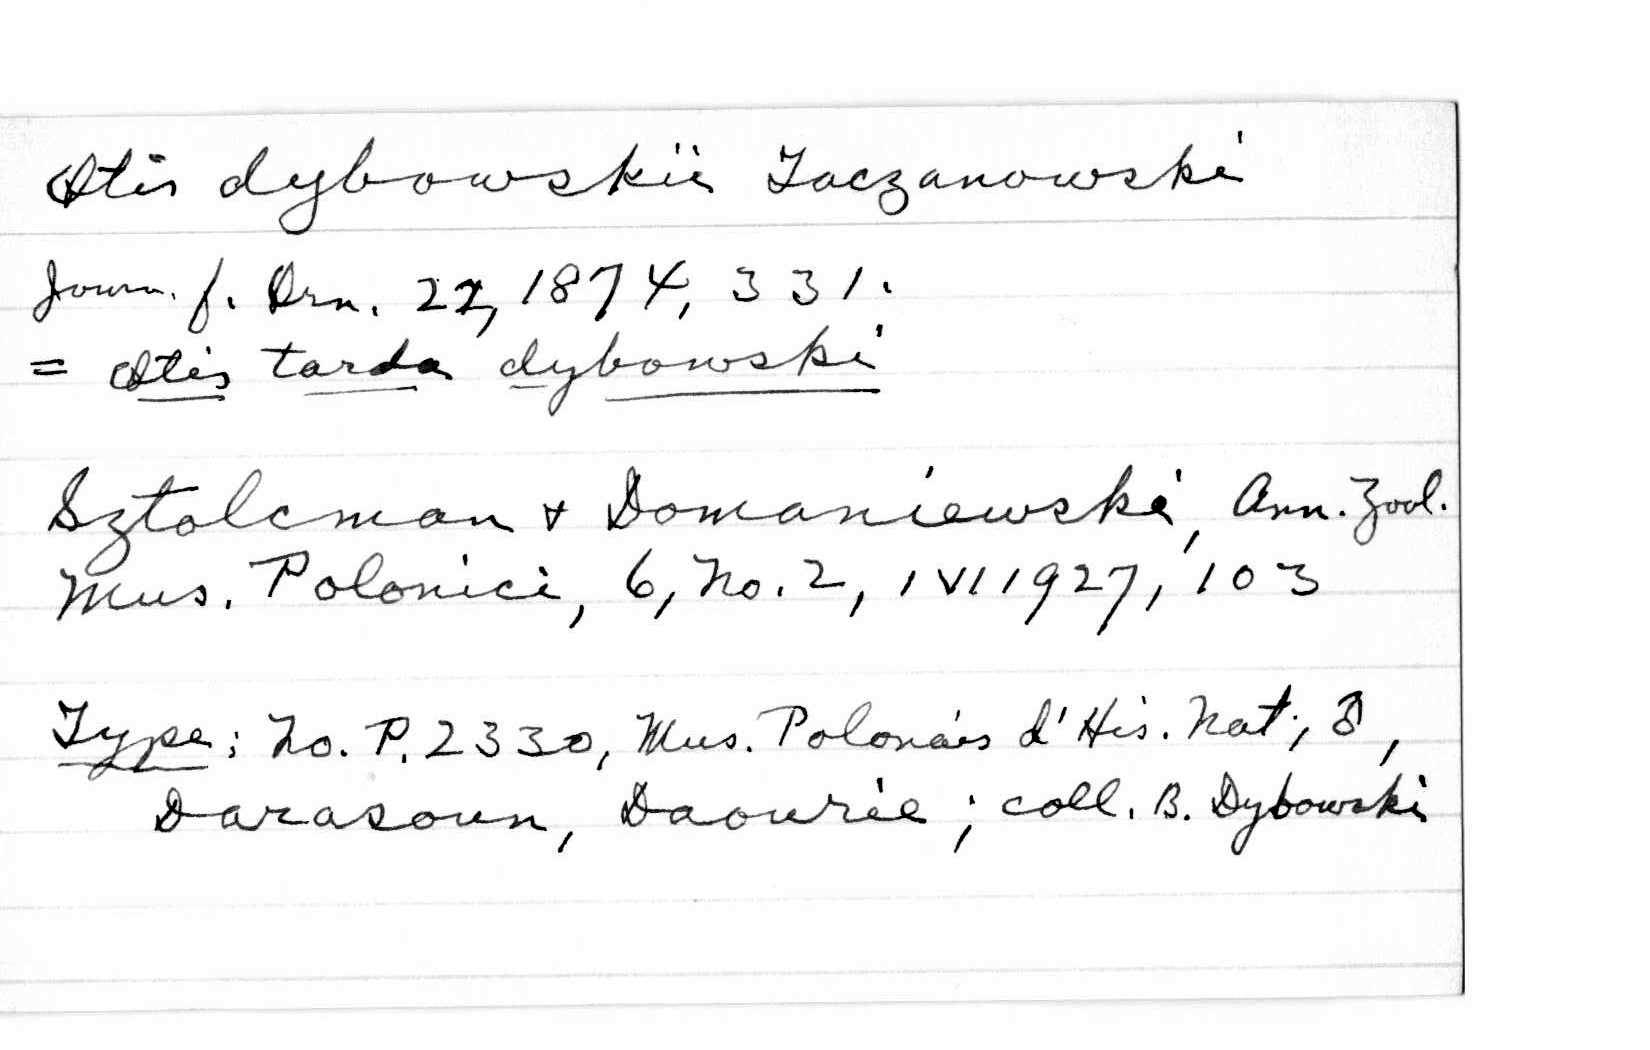 Otis dybowskii Taczanowski
Journ. f. Orn. 22, 1874, 331.
= Otis tarda dybowski
Sztolcman & Domaniewski, Ann. Zool.
Mus. Polonici, 6, No. 2, 1 VI 1927, 103
Type: No. P. 2330, Mus. Polonais d'His. Nat; ♂,
Darasoun, Daourie; coll. B. Dybowski